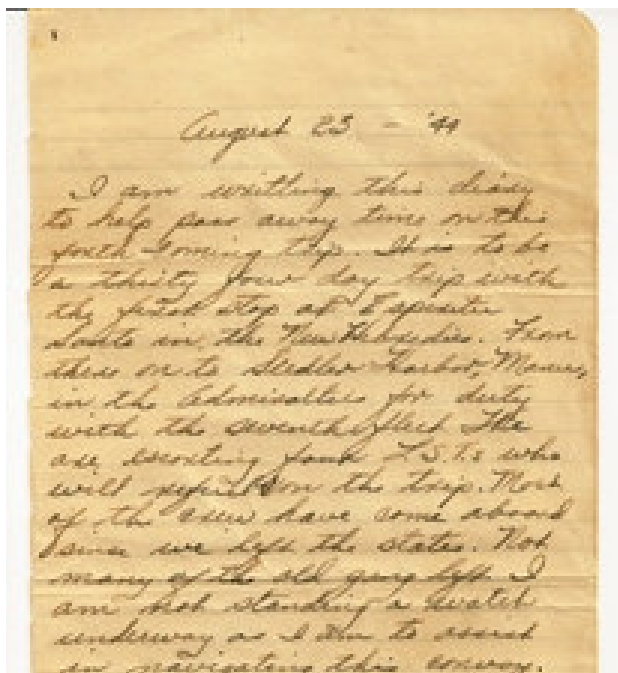 August 23 - '44
I am writting this diary
to help pass away time on this
forth coming trip. It is to be
a thirty four day trip with
the first stop at Espiritu
Santo in the New Hebredies. From
there on to Seedler Harbor, Manus,
in the Admiralties for duty
with the seventh fleet. The
are escorting four L.S.T.s who
will on the trip. More
of the crew have come aboard
since we left the states. Not
many of the old gang left. I
am not standing a watch
underway as I am to assist
in navigating this convoy.